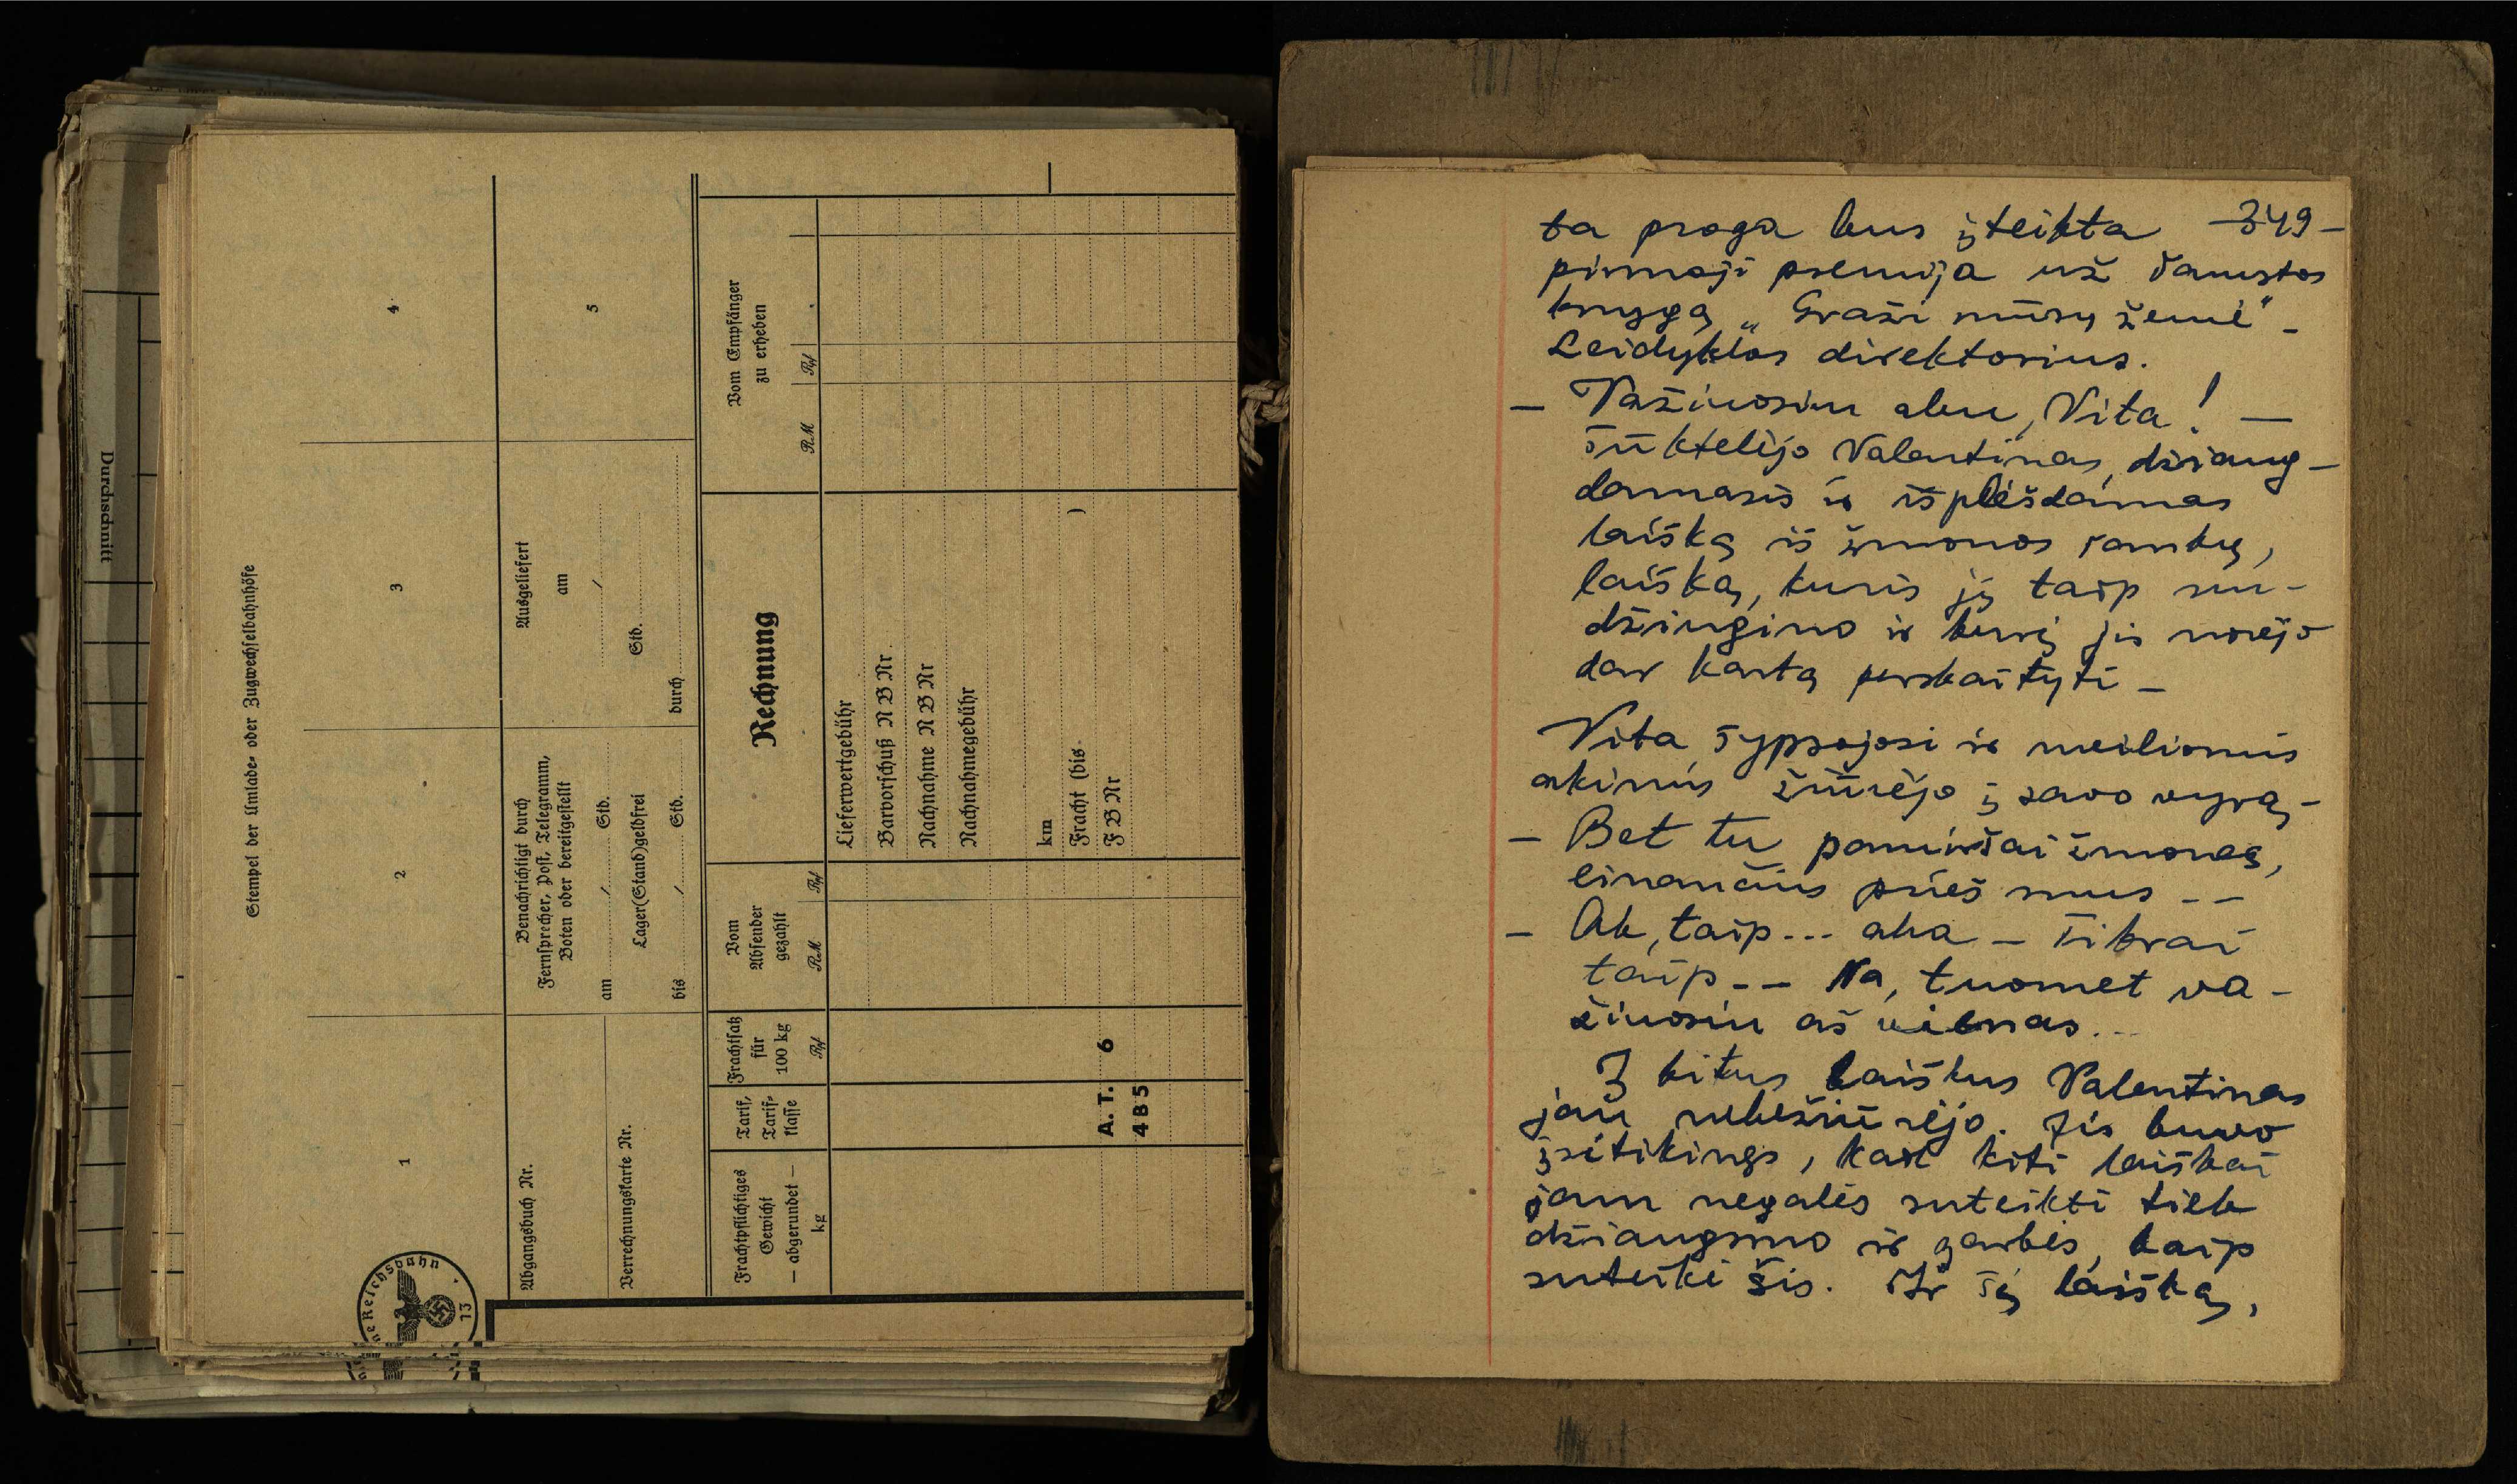 Durchschnitt
Stempel der Umlade- oder Zugwechselbahnhöfe
1
2
3
4
Abgangsbuch Nr.
Verrechnungskarte Nr.
Benachrichtigt durch
Fernsprecher, Post, Telegramm,
Boten oder bereitgestellt
am / Std.
Lager(Stand)geldfrei
bis / Std.
Ausgeliefert
am
/
Std.
durch
5
Frachtpflichtiges
Gewicht
— abgerundet —
kg
Tarif,
Tarif-
klasse
Frachtsatz
für
100 kg
Rpf
Vom
Absender
gezahlt
RM Rpf
Rechnung
Vom Empfänger
zu erheben
RM Rpf
Lieferwertgebühr
Barvorschuß N B Nr
Nachnahme N B Nr
Nachnahmegebühr
km
Fracht (bis )
A. T. 6 F B Nr
4 B 5
ne Reichsbahn
13
ta proga bus įteikta -349-
pirmoji premija už Tamstos
knygą „Graži mūsų žemė" -
Leidyklos direktorius.
- Važiuosim abu, Vita! -
šūktelėjo Valentinas, džiaug-
damasis ir išplėšdamas
laišką iš žmonos rankų,
laišką, kuris jį taip nu-
džiugino ir kurį jis norėjo
dar kartą perskaityti -
Vita šypsojosi ir meiliomis
akimis žiūrėjo į savo vyrą -
- Bet tu pamiršai žmones,
einančius prieš mus --
- Ak, taip... aha - Tikrai
taip -- Na, tuomet va-
žiuosiu aš vienas...
Į kitus laiškus Valentinas
jau nebežiūrėjo. Jis buvo
įsitikinęs, kad kiti laiškai
jam negalės suteikti tiek
džiaugsmo ir garbės, kaip
suteikė šis. Ir šį laišką,